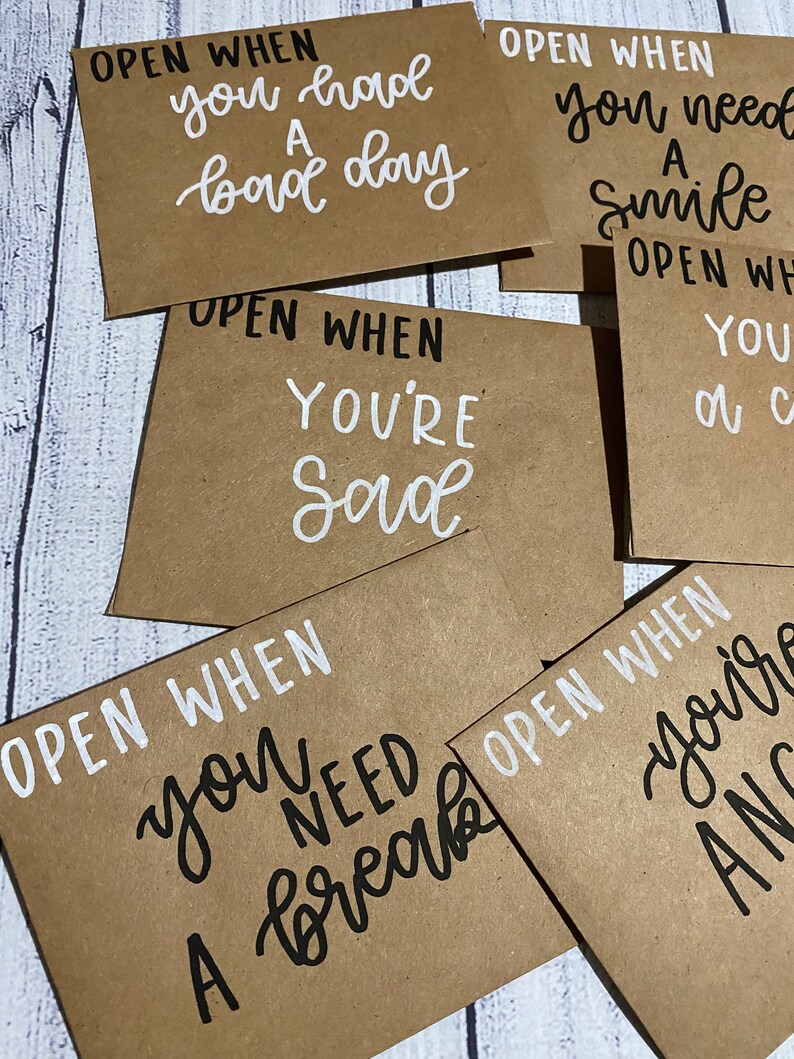 OPEN WHEN
you had
A
bad day
OPEN WHEN
you need
A
smile
OPEN WHEN
YOU'RE
Sad
OPEN
YOU
a
OPEN WHEN
you NEED
A break
OPEN WHEN
you're